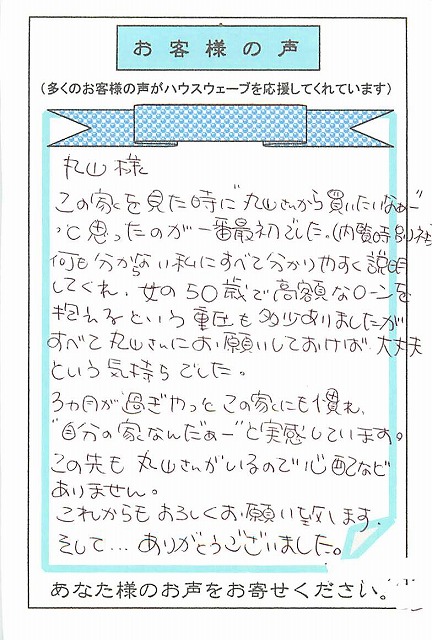 お客様の声
(多くのお客様の声がハウスウェーブを応援してくれています)
丸山様
この家を見た時に"丸山さんから買いたいなぁー"
と思ったのが一番最初でした。(内覧時別社
何も分からない私にすべて分かりやすく説明
してくれ、女の50歳で高額なローンを
抱えるという重圧も多少ありましたが
すべて丸山さんにお願いしておけば大丈夫
という気持ちでした。
3ヵ月が過ぎやっとこの家にも慣れ、
"自分の家なんだぁー"と実感しています。
この先も丸山さんがいるので心配など
ありません。
これからもよろしくお願い致します。
そして…ありがとうございました。
あなた様のお声をお寄せください。